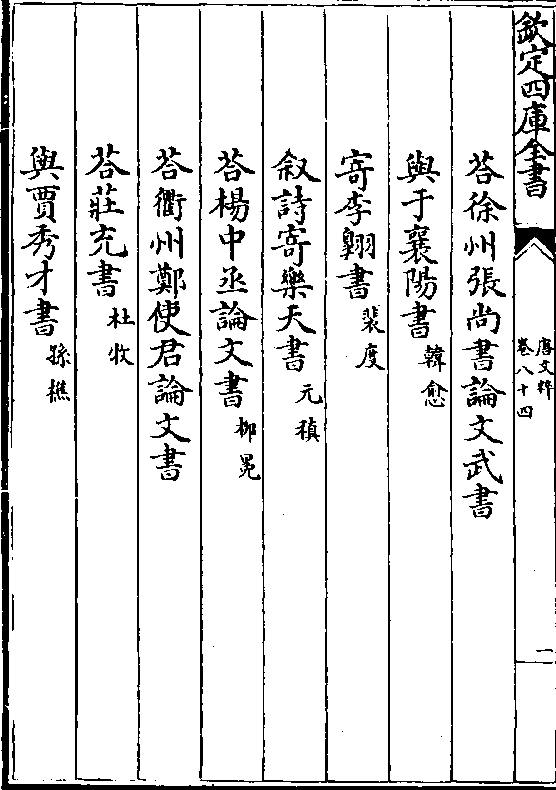 欽定四庫全書
唐文粹
卷八十四
一
荅徐州張尚書論文武書
與于襄陽書 韓愈
寄李翺書 裴度
叙詩寄樂天書 元稹
荅楊中丞論文書 柳冕
荅衢州鄭使君論文書
荅莊充書 杜牧
與賈秀才書 孫樵